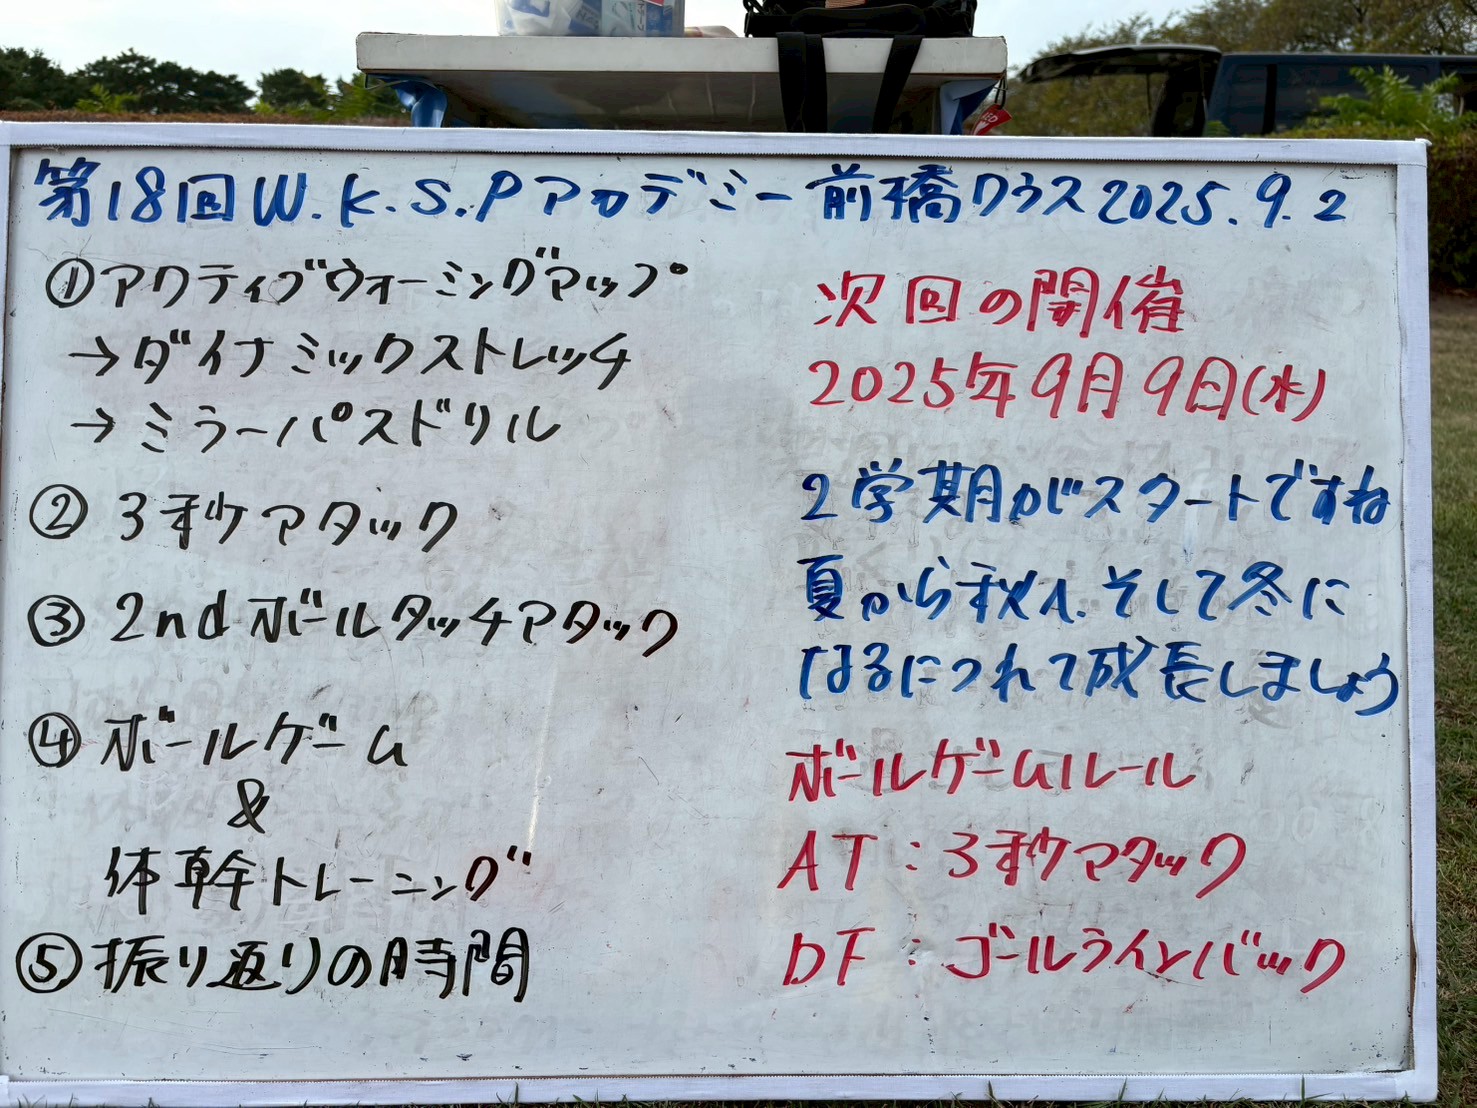 第18回W.K.S.Pアカデミー前橋クラス2025.9.2
①アクティブウォーミングアップ
→ダイナミックストレッチ
→ミラーパスドリル
② 3秒アタック
③ 2ndボールタッチアタック
④ ボールゲーム
&
体幹トレーニング
⑤振り返りの時間
次回の開催
2025年9月9日(水)
2学期がスタートですね
夏から秋へ、そして冬に
なるにつれて成長しましょう
ボールゲームルール
AT:3秒アタック
DF:ゴールラインバック